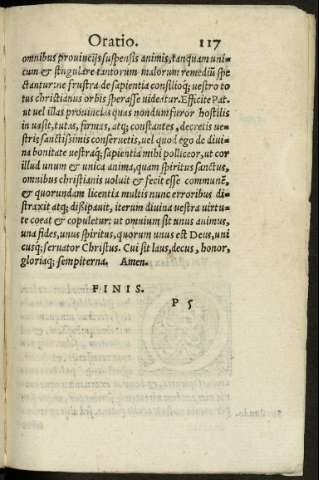 Oratio. 117
omnibus prouincijs suspensis animis, tanquam uni-
cum & singulare tantorum malorum remediū spe
ctantur: ne frustra de sapientia consilioq; uestro to
tus christianus orbis sperasse uideatur. Efficite Pat.
ut uel illas prouincias quas nondum furor hostilis
inuasit, tutas, firmas, atq; constantes, decretis ue-
stris sanctissimis conseruetis, uel quod ego de diui-
na bonitate uestraq; sapientia mihi polliceor, ut cor
illud unum & unica anima, quam spiritus sanctus,
omnibus christianis uoluit & fecit esse communē,
& quorundam licentia multis nunc erroribus di-
straxit atq; dißipauit, iterum diuina uestra uirtu-
te coeat & copuletur: ut omnium sit unus animus,
una fides, unus spiritus, quorum unus est Deus, uni
cusq; seruator Christus. Cui sit laus, decus, honor,
gloriaq; sempiterna. Amen.
FINIS.
P 5